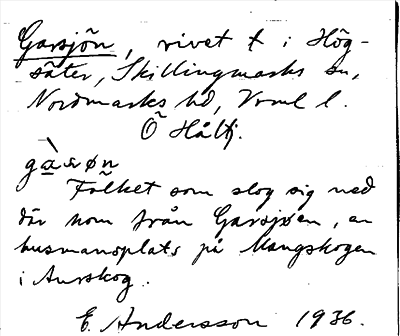 Garsjön, rivet t i Hög-
säter, Skillingmarks sn,
Nordmarks hd, Vrml l.
Ö Hållj.
Folket som slog sig ned
där kom från Garsjøen, en
husmansplats på Mangskogen
i Aurskog.
E. Andersson 1936.